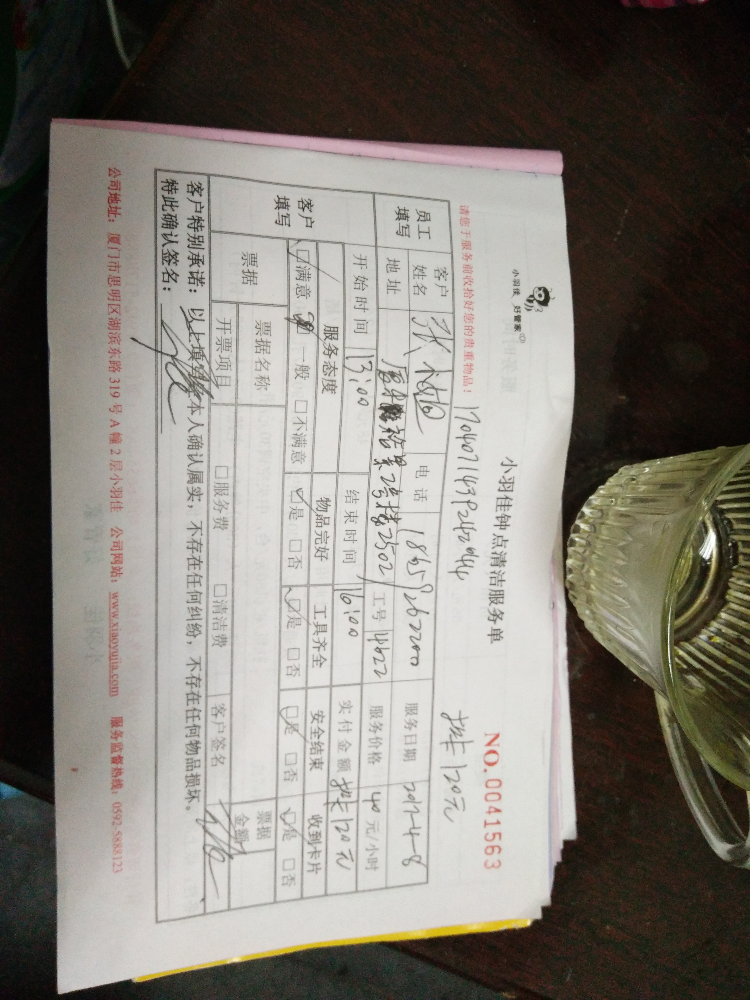 小羽佳 好管家
小羽佳钟点清洁服务单
NO.0041563
请您于服务前收拾好您的贵重物品!
扣卡120元
员工填写 客户姓名 张 电话 18659262200 服务日期 2017-4-8
地址 2号楼2502 工号 14622 服务价格 40 元/小时
开始时间 13:00 结束时间 16:00 实付金额 扣卡120元
客户填写 服务态度 物品完好 工具齐全 安全结束 收到卡片
☑满意 □一般 □不满意 ☑是 □否 ☑是 □否 ☑是 □否 ☑是 □否
票据 票据名称 票据金额
开票项目 □服务费 □清洁费 客户签名
客户特别承诺:以上填写经本人确认属实,不存在任何纠纷,不存在任何物品损坏。
特此确认签名:
公司地址:厦门市思明区湖滨东路319号A幢2层小羽佳 公司网站:www.xiaoyujia.com 服务监督热线:0592-5888123